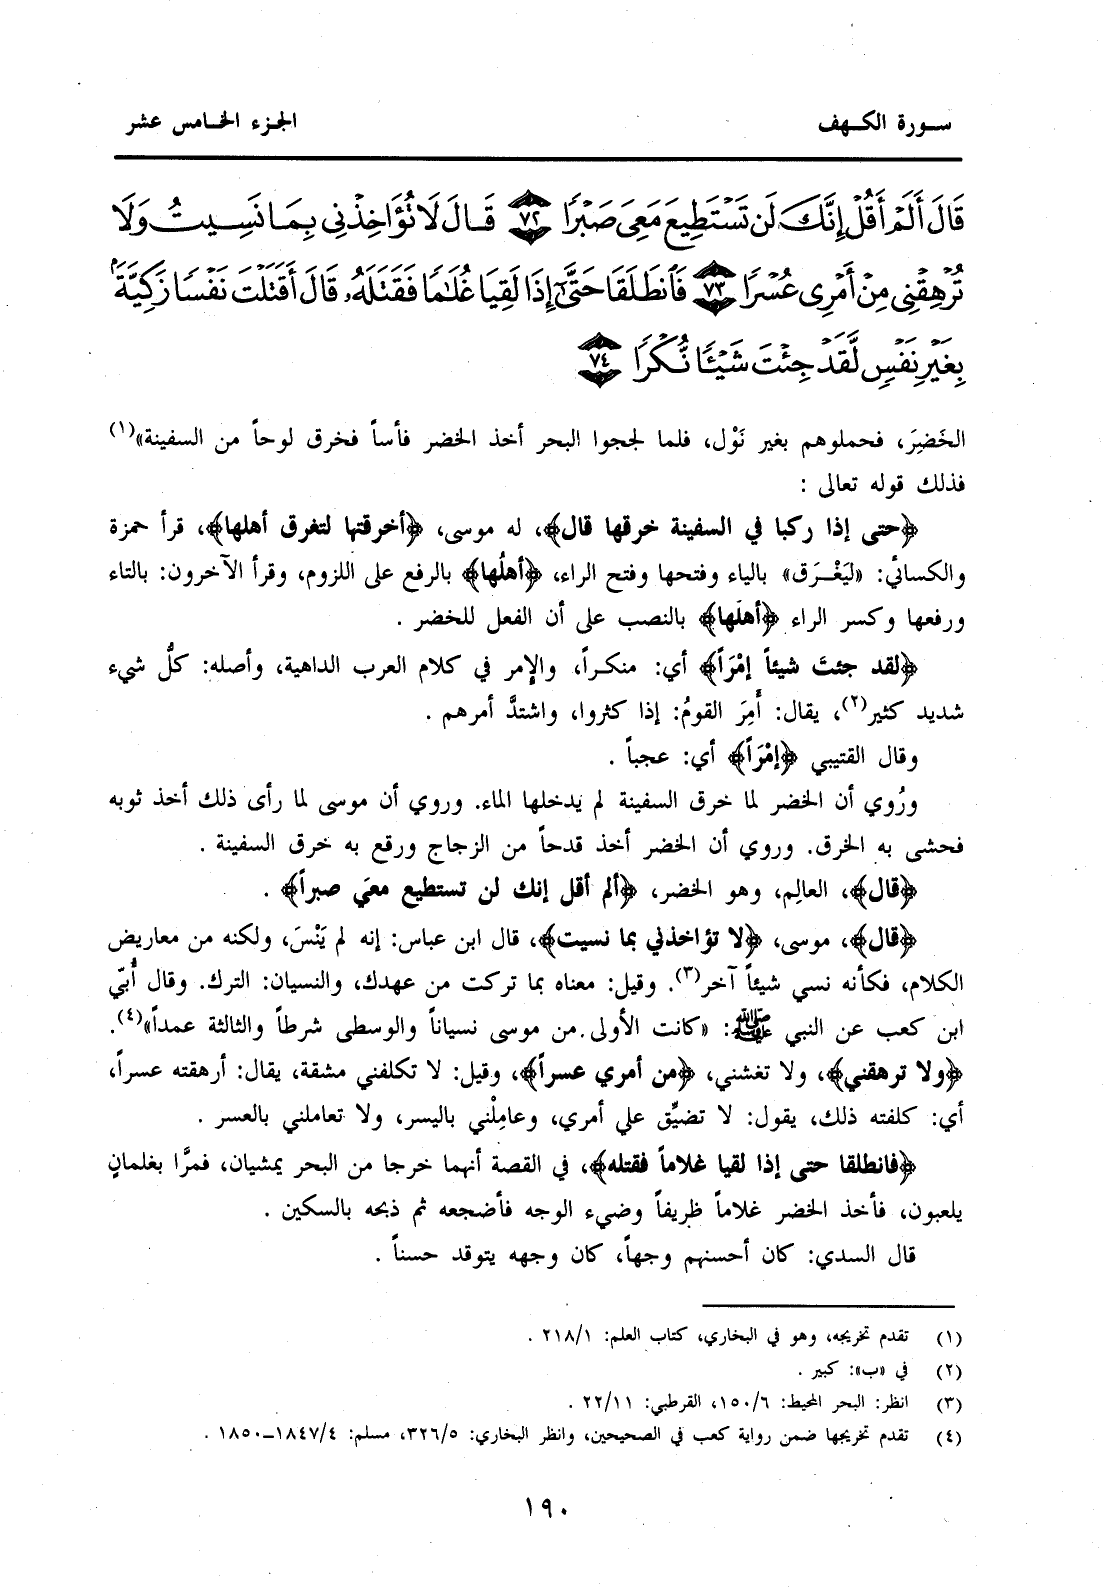 سورة الكهف
الجزء الخامس عشر
قَالَ أَلَمْ أَقُلْ إِنَّكَ لَن تَسْتَطِيعَ مَعِىَ صَبْرًا ٧٢ قَالَ لَا تُؤَاخِذْنِى بِمَا نَسِيتُ وَلَا
تُرْهِقْنِى مِنْ أَمْرِى عُسْرًا ٧٣ فَٱنطَلَقَا حَتَّىٰٓ إِذَا لَقِيَا غُلَٰمًا فَقَتَلَهُۥ قَالَ أَقَتَلْتَ نَفْسًا زَكِيَّةًۢ
بِغَيْرِ نَفْسٍ لَّقَدْ جِئْتَ شَيْـًٔا نُّكْرًا ٧٤
الخَضِرَ، فحملوهم بغير نَوْل، فلما لججوا البحر أخذ الخضر فأساً فخرق لوحاً من السفينة»(١)
فذلك قوله تعالى :
﴿حتى إذا ركبا في السفينة خرقها قال﴾، له موسى، ﴿أخرقتها لتغرق أهلها﴾، قرأ حمزة
والكسائي: «ليَغْـرَق» بالياء وفتحها وفتح الراء، ﴿أهلُها﴾ بالرفع على اللزوم، وقرأ الآخرون: بالتاء
ورفعها وكسر الراء ﴿أهلَها﴾ بالنصب على أن الفعل للخضر .
﴿لقد جئتَ شيئاً إمْرَاً﴾ أي: منكـراً، والإمر في كلام العرب الداهية، وأصله: كلُّ شيء
شديد كثير(٢)، يقال: أَمِرَ القومُ: إذا كثروا، واشتدَّ أمرهم .
وقال القتيبي ﴿إمْرَاً﴾ أي: عجباً .
ورُوي أن الخضر لما خرق السفينة لم يدخلها الماء. وروي أن موسى لما رأى ذلك أخذ ثوبه
فحشى به الخرق. وروي أن الخضر أخذ قدحاً من الزجاج ورقع به خرق السفينة .
﴿قال﴾، العالِم، وهو الخضر، ﴿ألم أقل إنك لن تستطيع معيَ صبراً﴾ .
﴿قال﴾، موسى، ﴿لا تؤاخذني بما نسيت﴾، قال ابن عباس: إنه لم يَنْسَ، ولكنه من معاريض
الكلام، فكأنه نسي شيئاً آخر(٣). وقيل: معناه بما تركت من عهدك، والنسيان: الترك. وقال أُبيّ
ابن كعب عن النبي ﷺ: «كانت الأولى من موسى نسياناً والوسطى شرطاً والثالثة عمداً»(٤).
﴿ولا ترهقني﴾، ولا تغشني، ﴿من أمري عسراً﴾، وقيل: لا تكلفني مشقة، يقال: أرهقته عسراً،
أي: كلفته ذلك، يقول: لا تضيِّق علي أمري، وعامِلْني باليسر، ولا تعاملني بالعسر .
﴿فانطلقا حتى إذا لقيا غلاماً فقتله﴾، في القصة أنهما خرجا من البحر يمشيان، فمرَّا بغلمانٍ
يلعبون، فأخذ الخضر غلاماً ظريفاً وضيء الوجه فأضجعه ثم ذبحه بالسكين .
قال السدي: كان أحسنهم وجهاً، كان وجهه يتوقد حسناً .
(١) تقدم تخريجه، وهو في البخاري، كتاب العلم: ٢١٨/١ .
(٢) في «ب»: كبير .
(٣) انظر: البحر المحيط: ١٥٠/٦، القرطبي: ٢٢/١١ .
(٤) تقدم تخريجها ضمن رواية كعب في الصحيحين، وانظر البخاري: ٣٢٦/٥، مسلم: ١٨٤٧/٤ــ١٨٥٠ .
١٩٠